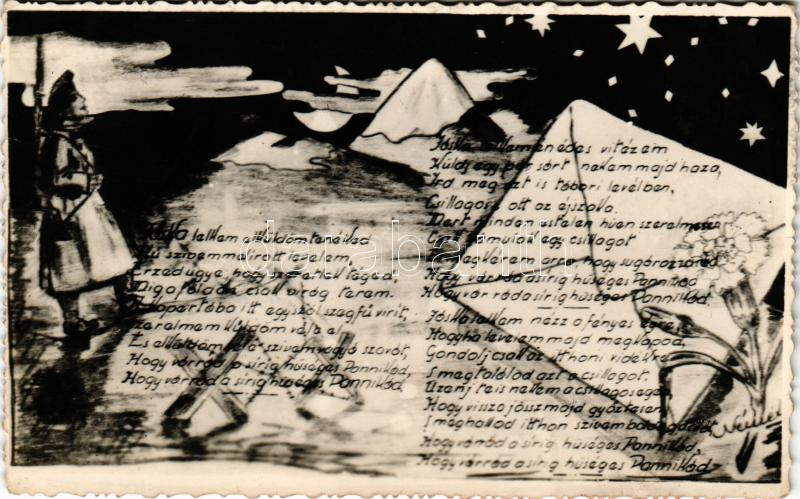 Jóska lelkem elküldöm tenéked
Hű szivemmel írott levelem,
Érzed ugye, hogy szeretlek téged,
De a földe csak virág terem.
egyszál szegfű virít,
Szerelmem küldöm véle el
És elküldöm véle szívem vágyó szavát,
Hogy vár rád a sírig hűséges Pannikád,
Hogy vár rád a sírig hűséges Pannikád.
Jóska lelkem édes vitézem
Küldj egy pár sort nekem majd haza,
Írd meg azt is tábori levélben,
Csillagos ott az éjszaka.
Mert minden estelen hűen szerelmesen
egy csillagot
S megkérem arra, hogy sugározza rád
Hogy vár rád a sírig hűséges Pannikád
Hogy vár rád a sírig hűséges Pannikád.
Jóska lelkem nézz a fényes égre,
Hogyha levelem majd megkapod,
Gondolj csak az itthoni vidékre
S megtalálod azt a csillagot.
Üzenj te is nekem a csillagos égen,
Hogy vissza jössz majd győztesen,
S meghallod itthon szívem
Hogy vár rád a sírig hűséges Pannikád,
Hogy vár rád a sírig hűséges Pannikád
darabanth